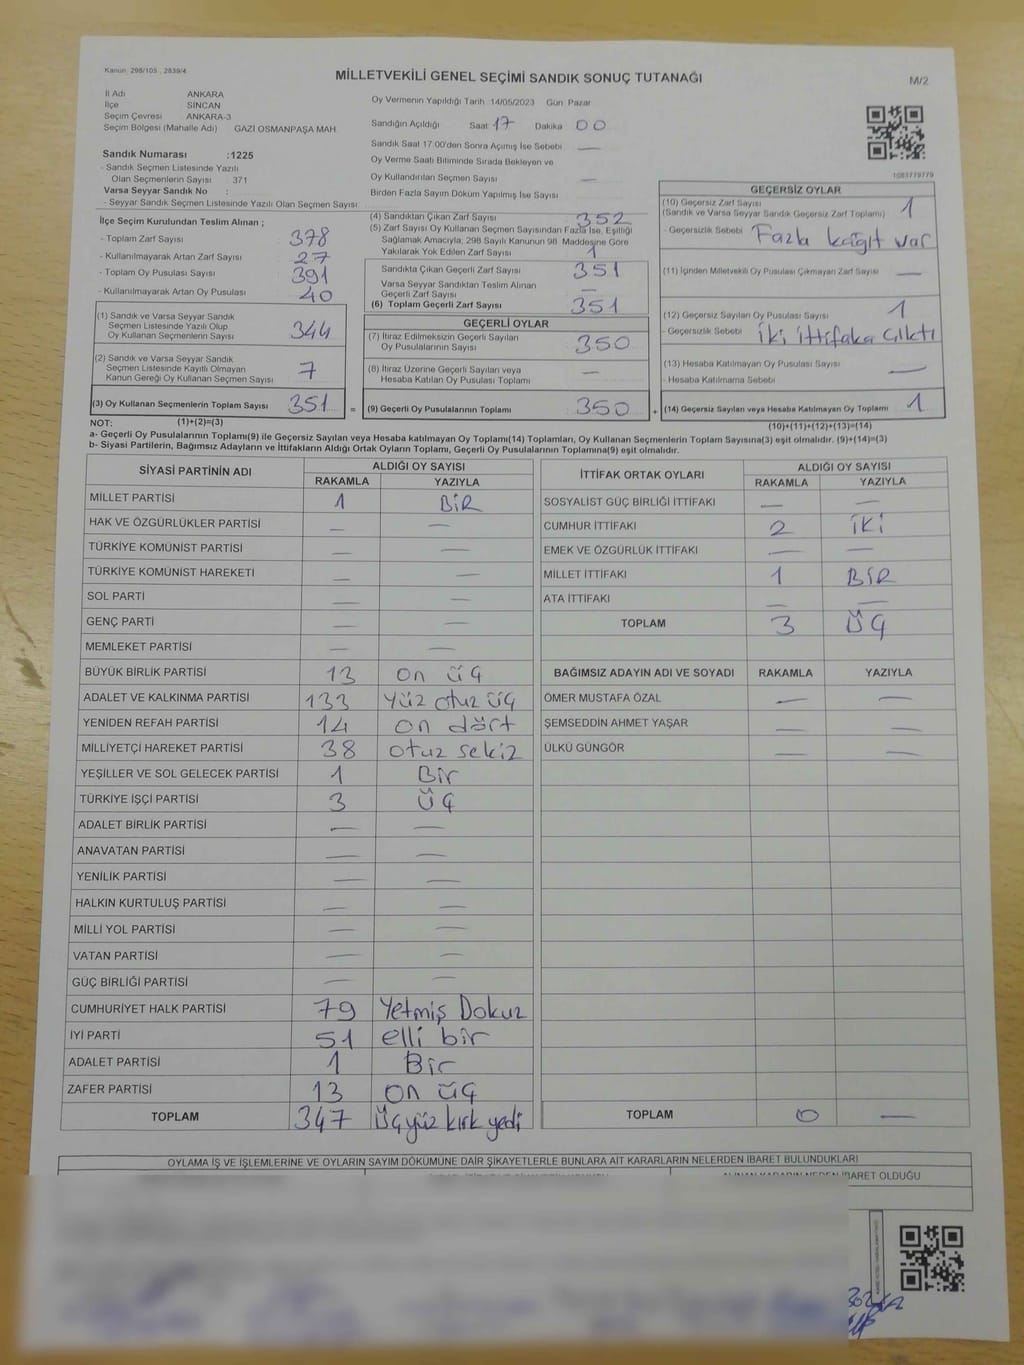 Kanun: 298/105 , 2839/4
MİLLETVEKİLİ GENEL SEÇİMİ SANDIK SONUÇ TUTANAĞI
M/2
İl Adı ANKARA
İlçe SİNCAN
Seçim Çevresi ANKARA-3
Seçim Bölgesi (Mahalle Adı) GAZİ OSMANPAŞA MAH.
Sandık Numarası :1225
- Sandık Seçmen Listesinde Yazılı
Olan Seçmenlerin Sayısı : 371
Varsa Seyyar Sandık No :
- Seyyar Sandık Seçmen Listesinde Yazılı Olan Seçmen Sayısı:
Oy Vermenin Yapıldığı Tarih :14/05/2023 Gün :Pazar
Sandığın Açıldığı Saat 17 Dakika 00
Sandık Saat 17:00'den Sonra Açılmış İse Sebebi —
Oy Verme Saati Bitiminde Sırada Bekleyen ve
Oy Kullandırılan Seçmen Sayısı —
Birden Fazla Sayım Döküm Yapılmış İse Sayısı
1083779779
İlçe Seçim Kurulundan Teslim Alınan ;
- Toplam Zarf Sayısı 378
- Kullanılmayarak Artan Zarf Sayısı 27
- Toplam Oy Pusulası Sayısı 391
- Kullanılmayarak Artan Oy Pusulası 40
(1) Sandık ve Varsa Seyyar Sandık
Seçmen Listesinde Yazılı Olup
Oy Kullanan Seçmenlerin Sayısı 344
(2) Sandık ve Varsa Seyyar Sandık
Seçmen Listesinde Kayıtlı Olmayan
Kanun Gereği Oy Kullanan Seçmen Sayısı 7
(3) Oy Kullanan Seçmenlerin Toplam Sayısı 351 =
(1)+(2)=(3)
(4) Sandıktan Çıkan Zarf Sayısı 352
(5) Zarf Sayısı Oy Kullanan Seçmen Sayısından Fazla İse, Eşitliği
Sağlamak Amacıyla, 298 Sayılı Kanunun 98. Maddesine Göre
Yakılarak Yok Edilen Zarf Sayısı 1
Sandıkta Çıkan Geçerli Zarf Sayısı 351
Varsa Seyyar Sandıktan Teslim Alınan
Geçerli Zarf Sayısı —
(6) Toplam Geçerli Zarf Sayısı 351
GEÇERLİ OYLAR
(7) İtiraz Edilmeksizin Geçerli Sayılan
Oy Pusulalarının Sayısı 350
(8) İtiraz Üzerine Geçerli Sayılan veya
Hesaba Katılan Oy Pusulası Toplamı —
(9) Geçerli Oy Pusulalarının Toplamı 350 +
GEÇERSİZ OYLAR
(10) Geçersiz Zarf Sayısı
(Sandık ve Varsa Seyyar Sandık Geçersiz Zarf Toplamı) 1
- Geçersizlik Sebebi Fazla kağıt var
(11) İçinden Milletvekili Oy Pusulası Çıkmayan Zarf Sayısı —
(12) Geçersiz Sayılan Oy Pusulası Sayısı 1
- Geçersizlik Sebebi iki ittifaka çıktı
(13) Hesaba Katılmayan Oy Pusulası Sayısı —
- Hesaba Katılmama Sebebi
(14) Geçersiz Sayılan veya Hesaba Katılmayan Oy Toplamı 1
(10)+(11)+(12)+(13)=(14)
NOT:
a- Geçerli Oy Pusulalarının Toplamı(9) ile Geçersiz Sayılan veya Hesaba katılmayan Oy Toplamı(14) Toplamları, Oy Kullanan Seçmenlerin Toplam Sayısına(3) eşit olmalıdır. (9)+(14)=(3)
b- Siyasi Partilerin, Bağımsız Adayların ve İttifakların Aldığı Ortak Oyların Toplamı, Geçerli Oy Pusulalarının Toplamına(9) eşit olmalıdır.
SİYASİ PARTİNİN ADI ALDIĞI OY SAYISI
RAKAMLA YAZIYLA
MİLLET PARTİSİ 1 BİR
HAK VE ÖZGÜRLÜKLER PARTİSİ — —
TÜRKİYE KOMÜNİST PARTİSİ — —
TÜRKİYE KOMÜNİST HAREKETİ — —
SOL PARTİ — —
GENÇ PARTİ — —
MEMLEKET PARTİSİ — —
BÜYÜK BİRLİK PARTİSİ 13 on üç
ADALET VE KALKINMA PARTİSİ 133 yüz otuz üç
YENİDEN REFAH PARTİSİ 14 on dört
MİLLİYETÇİ HAREKET PARTİSİ 38 otuz sekiz
YEŞİLLER VE SOL GELECEK PARTİSİ 1 Bir
TÜRKİYE İŞÇİ PARTİSİ 3 üç
ADALET BİRLİK PARTİSİ — —
ANAVATAN PARTİSİ — —
YENİLİK PARTİSİ — —
HALKIN KURTULUŞ PARTİSİ — —
MİLLİ YOL PARTİSİ — —
VATAN PARTİSİ — —
GÜÇ BİRLİĞİ PARTİSİ — —
CUMHURİYET HALK PARTİSİ 79 Yetmiş Dokuz
İYİ PARTİ 51 elli bir
ADALET PARTİSİ 1 Bir
ZAFER PARTİSİ 13 on üç
TOPLAM 347 üçyüz kırk yedi
İTTİFAK ORTAK OYLARI ALDIĞI OY SAYISI
RAKAMLA YAZIYLA
SOSYALİST GÜÇ BİRLİĞİ İTTİFAKI — —
CUMHUR İTTİFAKI 2 iki
EMEK VE ÖZGÜRLÜK İTTİFAKI — —
MİLLET İTTİFAKI 1 BİR
ATA İTTİFAKI — —
TOPLAM 3 üç
BAĞIMSIZ ADAYIN ADI VE SOYADI RAKAMLA YAZIYLA
ÖMER MUSTAFA ÖZAL — —
ŞEMSEDDİN AHMET YAŞAR — —
ÜLKÜ GÜNGÖR — —
TOPLAM 0 —
OYLAMA İŞ VE İŞLEMLERİNE VE OYLARIN SAYIM DÖKÜMÜNE DAİR ŞİKAYETLERLE BUNLARA AİT KARARLARIN NELERDEN İBARET BULUNDUKLARI
ALINAN KARARIN NEDEN İBARET OLDUĞU